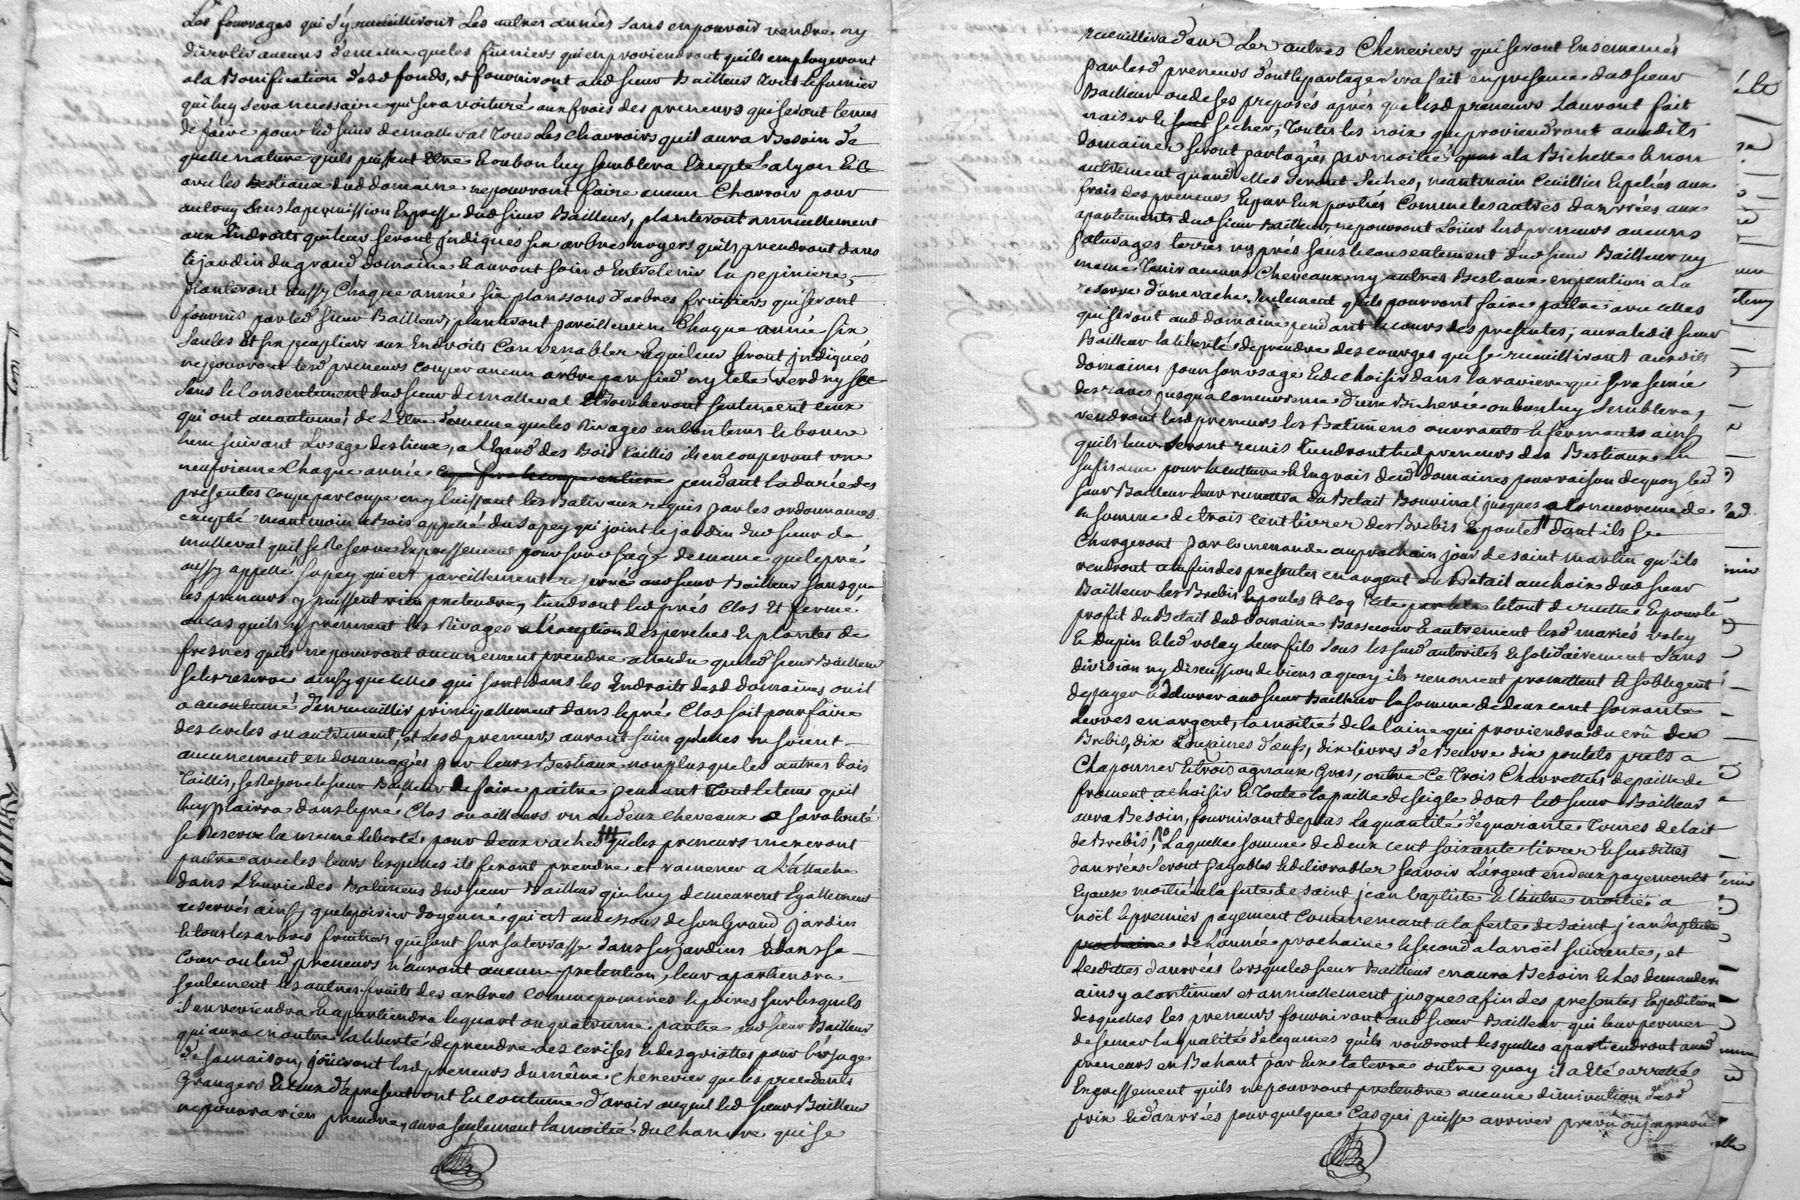 Les fourrages qui s'y recueilliront les autres années sans en pouvoir vendre ny
divertir aucuns de meme que les fumiers qui en proviendront qu'ils employeront
a la Bonification desd fonds, et fourniront aud sieur Bailleur tout le fumier
qui luy sera necessaire qui sera voituré aux frais des preneurs qui seront tenus
de faire pour led sieur de malleval tous les charroirs qu'il aura Besoin de
quelle nature qu'ils puissent Etre Et ou bon luy semblera Excepté a Lyon Et
avec les Bestiaux dud domaine ne pourront faire aucun Charroir pour
autruy sans la permission Expresse dud sieur Bailleur, planteront annuellement
aux Endroits qui leur seront indiqués six arbres noyers qu'ils prendront dans
le jardin du grand domaine Et auront soin d'Entretenir la pepiniere,
planteront aussy chaque année six planssons d'arbres fruitiers qui seront
fournis par led sieur Bailleur, planteront pareillement Chaque année six
saules Et six peupliers aux Endroits Convenables Et qui leur seront indiqués
ne pourront lesd preneurs couper aucun arbre par pied ny tete verd ny sec
sans le Consentement dud sieur de malleval Ebrancheront seulement ceux
qui ont accoutumé de L'Etre de meme que les Rivages en bon tems Et bonne
lune suivant L'usage des lieux, a l'Egard des Bois taillis ils en couperont une
neufvieme chaque année pendant la durée des
presentes coupe par coupe en y laissant les Balivaux requis par les ordonnances
excepté neantmoin le bois appellé du Sapey qui joint le jardin dud sieur de
malleval qu'il se Reserve Expressement pour son usage de meme que le pré
aussy appellé Sapey qui est pareillement reservé aud sieur Bailleur sans que
les preneurs y puissent rien pretendre, tiendront led prés Clos Et fermé
au cas qu'ils y prennent les Rivages a l'exception des perches Et plantes de
fresnes qu'ils ne pourront aucunement prendre attendu que led sieur Bailleur
se les reserve ainsy que celles qui sont dans les Endroits desd domaines ou il
a accoutumé d'en recueillir principallement dans le pré Clos soit pour faire
des cercles ou autrement, et lesd preneurs auront soin qu'elles ne soient
aucunement endomagées par leurs Bestiaux non plus que les autres bois
Taillis, se Reserve le sieur Bailleur de faire paitre pendant tout le tems qu'il
luy plaira dans le pré Clos ou ailleurs un ou deux chevaux a sa volonté
se Reserve la meme liberté pour deux vaches que les preneurs meneront
paitre avec les leurs lesquelles ils feront prendre et ramener a L'attache
dans L'Ecurie des Batimens dud sieur Bailleur qui luy demeurent Egallement
reservés ainsy que le poirier doyenné qui est au dessous de son Grand jardin
Et tous les arbres fruitiers qui sont sur sa terrasse dans ses jardins Et dans sa
Cour ou lesd preneurs n'auront aucune pretention, leur apartiendra
seulement les autres fruits des arbres comme pomes Et poires sur lesquels
il en reviendra Et apartiendra le quart ou quatrieme partie aud sieur Bailleur
qui aura en outre la liberté de prendre des cerises Et des griottes pour l'usage
de sa maison, jouiront lesd preneurs du meme chenevier que les precedents
Grangers Et ceux d'apresent ont Eu coutume d'avoir auquel led sieur Bailleur
ne pourra rien prendre, aura seulement la moitié du chanvre qui se
recueillira dans les autres Cheneviers qui seront Ensemencés
par lesd preneurs dont le partage sera fait en presence dud sieur
Bailleur ou de ses preposés aprés que lesd preneurs L'auront fait
naiser Et secher, Toutes les noix qui proviendront auxdits
domaines seront partagées par moitié a la Bichette Et non
autrement quand elles seront seches, neantmoin Cuillies Et pelées aux
frais des preneurs Et par Eux portées Comme les autres danrrées aux
apartements dud sieur Bailleur, ne pourront Loüer lesd preneurs aucuns
paturages terres ny prés sans le consentement dud sieur Bailleur ny
meme Tenir aucuns Chevaux ny autres Bestiaux en pention a la
reserve d'une vache seulement qu'ils pourront faire paitre avec celles
qui seront aud domaine pendant le cours des presentes, aura ledit sieur
Bailleur la liberté de prendre des courges qui se recueilliront auxdits
domaines pour son usage Et de choisir dans la raviere qui sera semée
des raves jusqu'a concurrence d'une Bicherée ou bon luy semblera,
rendront lesd preneurs les Batimens ouvrants Et fermants ainsy
qu'ils leur seront remis Tiendront lesd preneurs des Bestiaux
suffisament pour la culture Et Engrais desd domaines pour raison de quoy led
sieur Bailleur leur remettra du Betail Bouvinal jusques a concurrence de
la somme de trois cent livres des Brebis Et poules dont ils se
Chargeront par commande au prochain jour de saint martin qu'ils
rendront a la fin des presentes en argent ou Betail au choix dud sieur
Bailleur les Brebis Et poules Et coq Et le tout de recette Et pour le
profit du Betail dud domaine Bassecour Et autrement lesd mariés voley
Et dupin Et led voley leur fils sous les sud autorités Et solidairement sans
division ny discussion de biens a quoy ils renoncent promettent Et s'obligent
de payer Et delivrer aud sieur Bailleur la somme de deux cent soixante
Livres en argent, la moitié de la laine qui proviendra du crû des
Brebis, dix Douzaines d'oeufs, dix livres de Beurre dix poulets prets a
Chaponner Et trois agneaux Gras, outre ce Trois Charrettées de paille de
froment a choisir Et Toute la paille de seigle dont led sieur Bailleur
aura Besoin, fourniront de plus la quantité de quarante Tomes de lait
de Brebis, Laquelle somme de deux cent soixante livres Et susdittes
danrrées seront payables Et delivrables sçavoir L'argent en deux payements
Egaux moitié a la fete de saint jean baptiste Et l'autre moitié a
noël le premier payement commencant a la fete de saint jean baptiste
prochaine de L'année prochaine Et second a la noël suivante, et
lesdittes danrrées lorsque led sieur Bailleur en aura Besoin Et les demandera
ainsy a continuer et annuellement jusques a fin des presentes Expedition
desquelles les preneurs fourniront aud sieur Bailleur qui leur permet
de semer la qualité de legumes qu'ils voudront lesquelles apartiendront auxd
preneurs en Bechant par Eux la terre outre quoy il a Eté arretées
Expressement qu'ils ne pourront pretendre aucune diminution desd
prix Et danrrées pour quelque Cas qui puisse arriver prevu ou impreveu